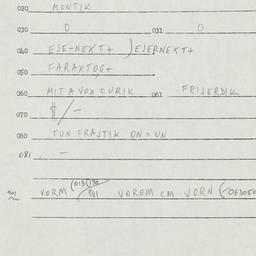 020 MONTIK
030 0 031 0
040 EJE-NEXT+ ) EJERNEXT+
050 FARAXTOG+
060 MIT A VOX CURIK 061 FRIJERDIK
070 $/-
080 FUN FRAJTIK ON = UN
081 -
901 VORM (013/170 Q1 VOREM CM VORN (-063050